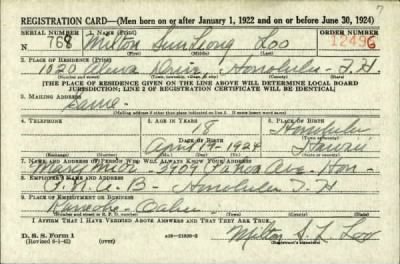 7
REGISTRATION CARD—(Men born on or after January 1, 1922 and on or before June 30, 1924)
SERIAL NUMBER 1. NAME (Print) ORDER NUMBER
768 Milton Sun Leong Loo 12496
(First) (Middle) (Last)
2. PLACE OF RESIDENCE (Print)
1020 Honolulu T. H.
(Number and street) (Town, township, village, or city) (County) (State)
[THE PLACE OF RESIDENCE GIVEN ON THE LINE ABOVE WILL DETERMINE LOCAL BOARD
JURISDICTION; LINE 2 OF REGISTRATION CERTIFICATE WILL BE IDENTICAL]
3. MAILING ADDRESS
Same
(Mailing address if other than place indicated on line 2. If same insert word same)
4. TELEPHONE 5. AGE IN YEARS 6. PLACE OF BIRTH
18 Honolulu
DATE OF BIRTH
April 19 1924 Hawaii
7. NAME AND ADDRESS OF PERSON WHO WILL ALWAYS KNOW YOUR ADDRESS
Hon
8. EMPLOYER'S NAME AND ADDRESS
Honolulu T. H.
9. PLACE OF EMPLOYMENT OR BUSINESS
Kaneohe Oahu
I AFFIRM THAT I HAVE VERIFIED ABOVE ANSWERS AND THAT THEY ARE TRUE.
D. S. S. Form 1
(over) Milton S. L. Loo